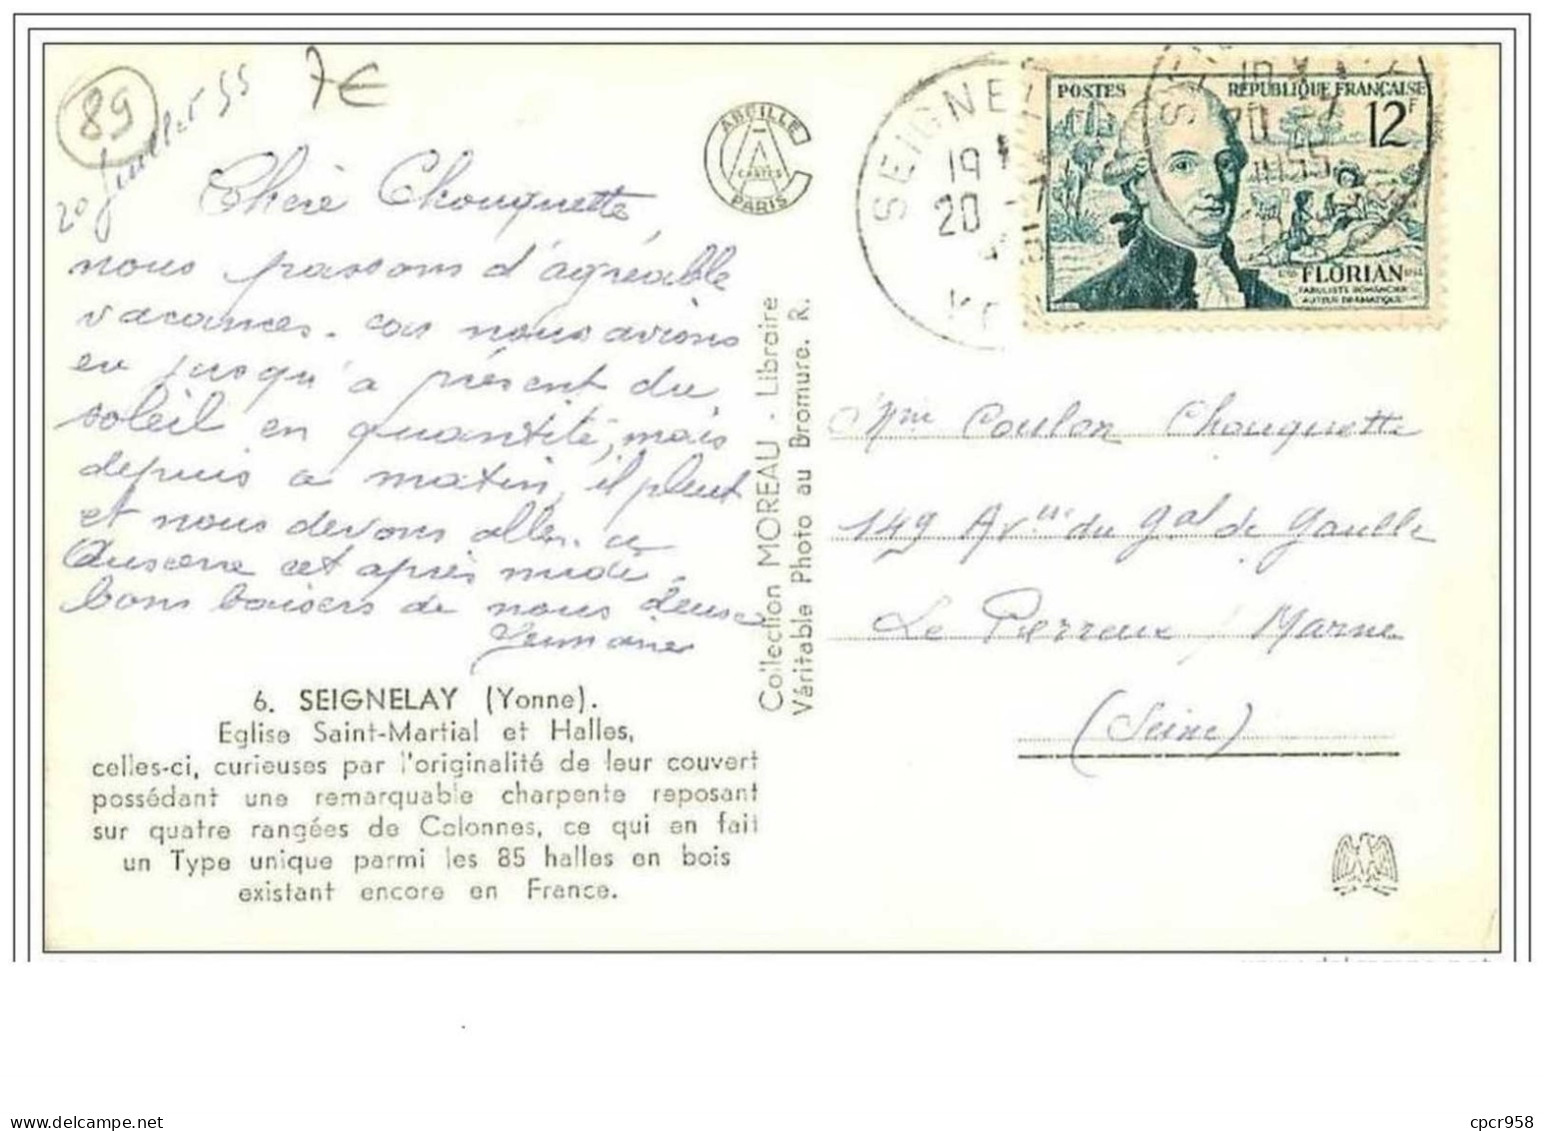 89
20 Juillet 55
7€
Chère Chouquette,
nous passons d'agréable
vacances. car nous avions
eu jusqu'à présent du
soleil en quantité, mais
depuis ce matin, il pleut
et nous devons aller à
Auxerre cet après midi.
bons baisers de nous deux
Germaine
6. SEIGNELAY (Yonne).
Eglise Saint-Martial et Halles,
celles-ci, curieuses par l'originalité de leur couvert
possédant une remarquable charpente reposant
sur quatre rangées de Colonnes, ce qui en fait
un Type unique parmi les 85 halles en bois
existant encore en France.
ABEILLE
CARTES
PARIS
Collection MOREAU - Libraire
Véritable Photo au Bromure. R.
SEIGNE
19
20 -7
POSTES
REPUBLIQUE FRANÇAISE
12F
20 -7
1955
FLORIAN
FABULISTE ROMANCIER
AUTEUR DRAMATIQUE
Mme Coulon Chouquette
149 Avue du Gal de Gaulle
Le Perreux / Marne
(Seine)
cpcr958